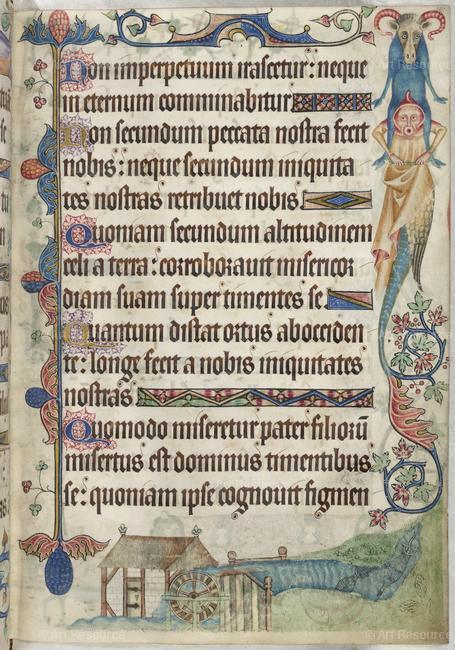 Non imperpetuum irascetur: neque
in eternum comminabitur
Non secundum peccata nostra fecit
nobis: neque secundum iniquita
tes nostras retribuet nobis
Quoniam secundum altitudinem
celi a terra: corroborauit misericor
diam suam super timentes se
Quantum distat ortus aboccciden
te: longe fecit a nobis iniquitates
nostras
Quomodo miseretur pater filiorū
misertus est dominus timentibus
se: quoniam ipse cognouit figmen
© Art Resource
© Art Resource